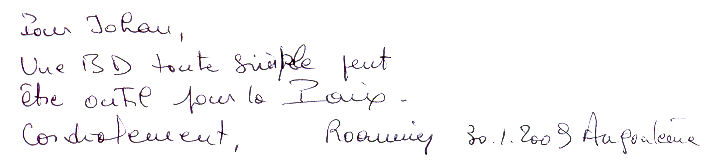 Pour Johan,
Une BD toute simple peut
être outil pour la Paix.
Cordialement, 30.1.2009 Angoulême